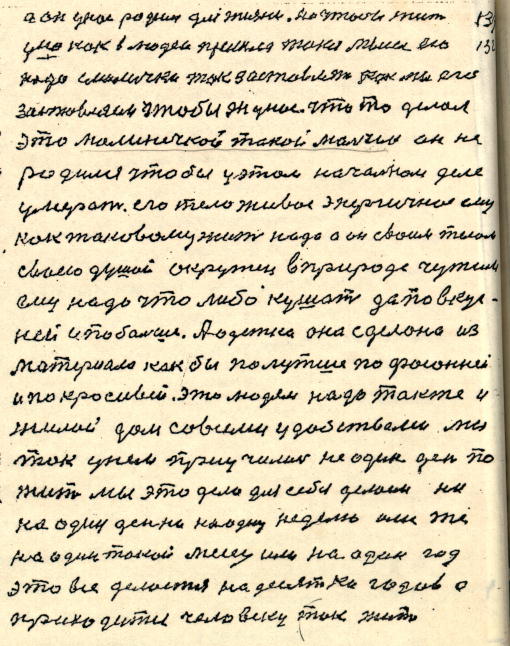 а он у нас родим для жизни. Но чтобы жит 139
ума как в людей пришла така мысл его 132
надо с малинка так заставлят как мы его
заставляем чтобы ж у нас. что то делал
это малинечкой такой малчик он не
родился чтобы у этом началном деле
умерат. его тело живое энергичное ему
как таковому жит надо а он своим телом
своею душой окружен в природе чужим
ему надо что либо кушат да повкус-
ней и побалше. А одежка она сделона из
материала как бы полутше по фасонней
и по красивей. это людям надо такте и
жилой дом со всеми удобствами мы
так у нем приучилис не один ден по
жит мы это дело для себя делаем ни
на один ден ни на одну неделю или же
на один такой месец или на один год
это все делается на десятки годов а
приходится человеку так жит